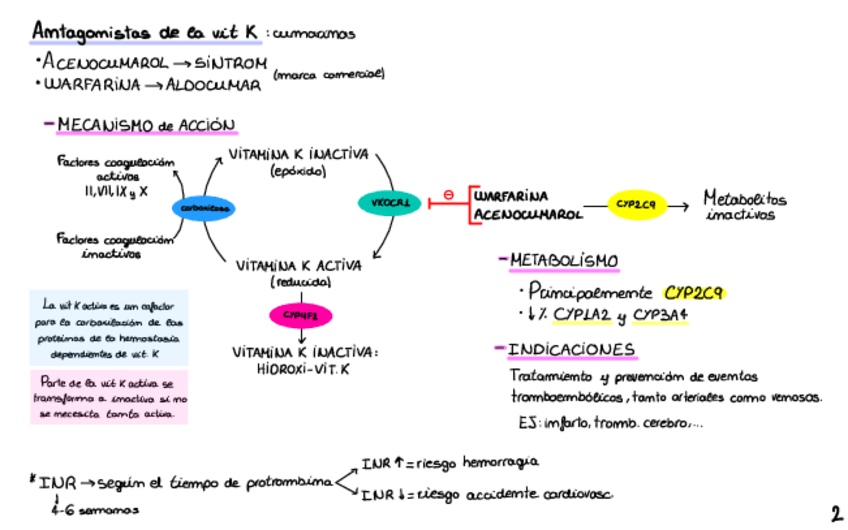 Antagonistas de la vit K : cumarinas
• ACENOCUMAROL → SINTROM
• WARFARINA → ALDOCUMAR
(marca comercial)
- MECANISMO de ACCIÓN
Factores coagulación
activos
II, VII, IX y X
Factores coagulación
inactivos
carboxilasa
VITAMINA K INACTIVA
(epóxido)
VKOCR1
⊖
WARFARINA
ACENOCUMAROL
CYP2C9 →
Metabolitos
inactivos
VITAMINA K ACTIVA
(reducida)
CYP4F2
VITAMINA K INACTIVA:
HIDROXI-VIT. K
La vit K activa es un cofactor
para la carboxilación de las
proteínas de la hemostasia
dependientes de vit. K
Parte de la vit K activa se
transforma a inactiva si no
se necesita tanta activa.
- METABOLISMO
• Principalmente CYP2C9
• ↓% CYP1A2 y CYP3A4
- INDICACIONES
Tratamiento y prevención de eventos
tromboembólicos, tanto arteriales como venosos.
EJ: infarto, tromb. cerebro,...
* INR → según el tiempo de protrombina
INR ↑ = riesgo hemorragia
INR ↓ = riesgo accidente cardiovasc.
4-6 semanas
2